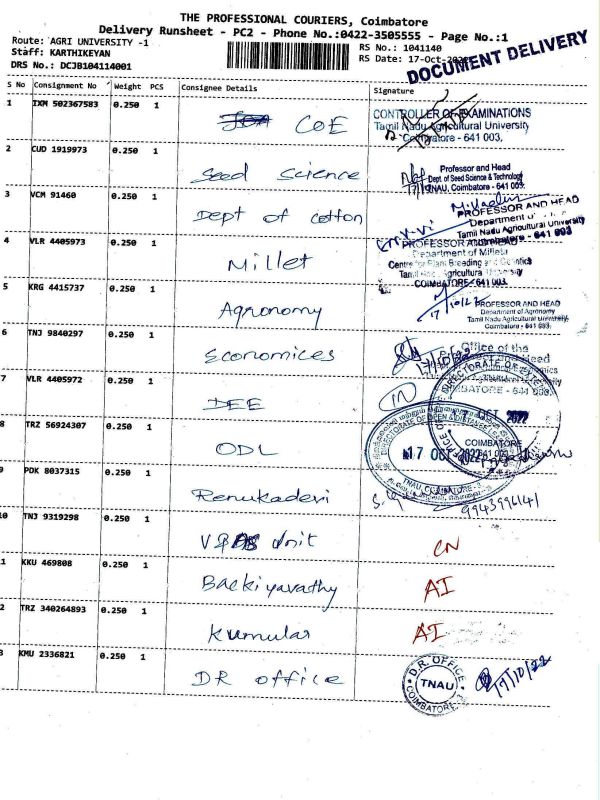 THE PROFESSIONAL COURIERS, Coimbatore
Delivery Runsheet - PC2 - Phone No.:0422-3505555 - Page No.:1
Route: AGRI UNIVERSITY -1
RS No.: 1041140
Staff: KARTHIKEYAN
RS Date: 17-Oct-2022
DRS No.: DCJB104114001
DOCUMENT DELIVERY
S No Consignment No Weight PCS Consignee Details Signature
1 IXM 502367583 0.250 1 COE
CONTROLLER OF EXAMINATIONS
Tamil Nadu Agricultural University
Coimbatore - 641 003.
2 CUD 1919973 0.250 1 Seed Science
Professor and Head
Dept. of Seed Science & Technology
TNAU, Coimbatore - 641 003.
3 VCM 91460 0.250 1 Dept of cotton
PROFESSOR AND HEAD
Department of
Tamil Nadu Agricultural University
Coimbatore - 641 003
4 VLR 4405973 0.250 1 Millet
PROFESSOR AND HEAD
Department of Millets
Centre for Plant Breeding and Genetics
Tamil Nadu Agricultural University
COIMBATORE - 641 003.
5 KRG 4415737 0.250 1 Agronomy
17/10/22
PROFESSOR AND HEAD
Department of Agronomy
Tamil Nadu Agricultural University
Coimbatore - 641 003.
6 TNJ 9840297 0.250 1 Economices
Office of the
Professor and Head
7 VLR 4405972 0.250 1 DEE
IN
DIRECTORATE OF
COIMBATORE - 641 003
OCT 2022
COIMBATORE
641 003
8 TRZ 56924307 0.250 1 ODL
DIRECTORATE OF OPEN & DISTANCE LEARNING
17 OCT 2022
TNAU, COIMBATORE - 3
9 PDK 8037315 0.250 1 Renukadevi
9943996141
10 TNJ 9319298 0.250 1 unit
CN
1 KKU 469808 0.250 1 Backiyavathy
AI
2 TRZ 340264893 0.250 1 Kumular
AI
3 KMU 2336821 0.250 1 DR office
D.R. OFFICE
TNAU
COIMBATORE-3
17/10/22